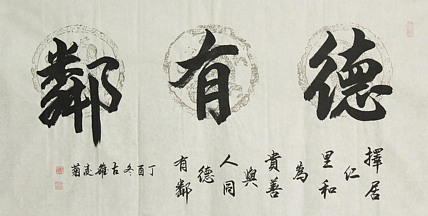 德有鄰
擇居
仁
里和
為
貴善
與
人同
德
有鄰
丁酉冬古